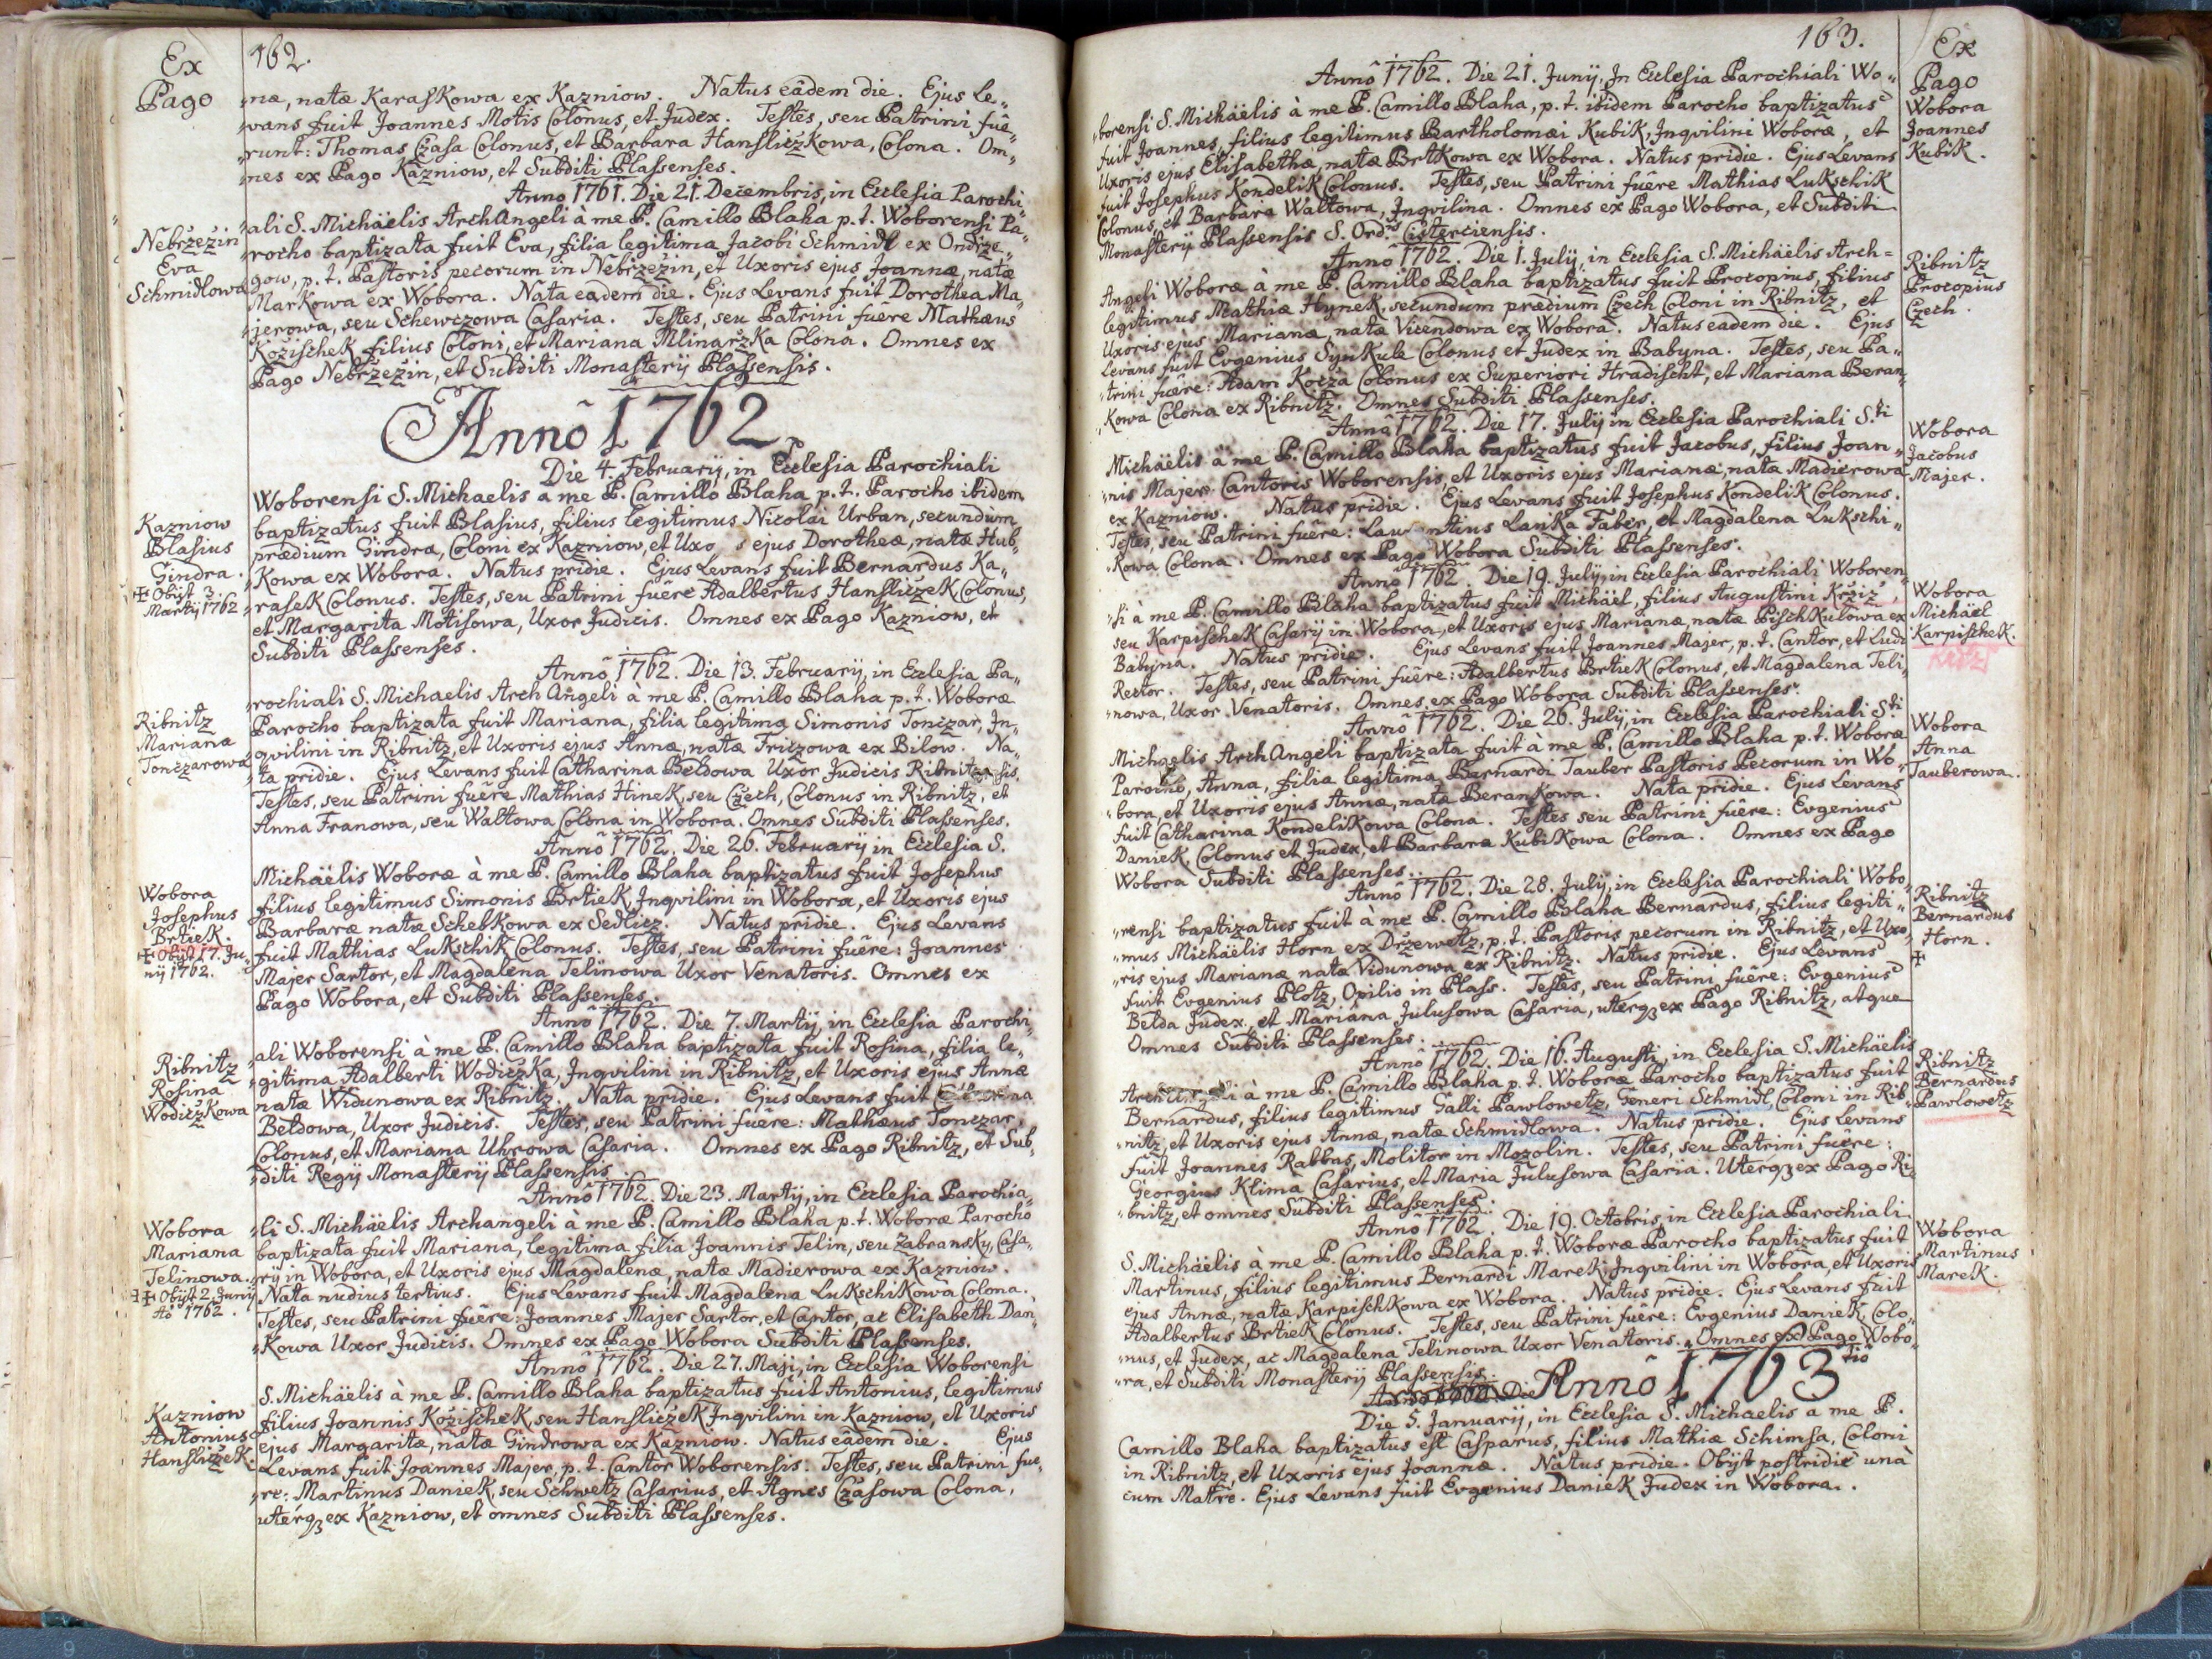 Ex
Pago
162.
næ, natæ Karaskowa ex Kazniow. Natus eâdem die. Ejus Le„
„vans fuit Joannes Motis Colonus, et Judex. Testes, seu Patrini fuê„
„runt: Thomas Czasa Colonus, et Barbara Hansliczkowa, Colona. Om„
nes ex Pago Kazniow, et Subditi Plassenses.
Anno 1761. Die 21. Decembris, in Ecclesia Parochi„
„ali S. Michäelis ArchAngeli à me P. Camillo Blaha p. t. Woborensi Pa„
„rocho baptizata fuit Eva, filia legitima Jacobi Schmidt ex Ondrze„
gow, p. t. Pastoris pecorum in Nebržežin, et Uxoris ejus Joannæ, natæ
Markowa ex Wobora. Nata eadem die. Ejus Levans fuit Dorothea Ma„
„jerowa, seu Schewczowa Casaria. Testes, seu Patrini fuêre Mathæus
Kožischek filius Coloni, et Mariana Mlinaržka Colona. Omnes ex
Pago Nebržežin, et Subditi Monasterij Plassensis.
Nebržežin
Eva
Schmidlowa
Annô 1762
Die 4. Februarij, in Ecclesia Parochiali
Woborensi S. Michaelis a me P. Camillo Blaha p. t. Parocho ibidem
baptizatus fuit Blasius, filius legitimus Nicolai Urban, secundùm
prædium Gindra, Coloni ex Kazniow, et Uxo s ejus Dorotheæ, natæ Hub„
„kowa ex Wobora. Natus pridie. Ejus Levans fuit Bernardus Ka„
„rasek Colonus. Testes, seu Patrini fuêre Adalbertus Hansliczek Colonus,
et Margarita Motisowa, Uxor Judicis. Omnes ex Pago Kazniow, et
Subditi Plassenses.
Kazniow
Blasius
Gindra.
Obijt 3.
Martij 1762
Annô 1762. Die 13. Februarij, in Ecclesia Pa„
„rochiali S. Michaelis Arch Angeli à me P. Camillo Blaha p. t. Woboræ
Parocho baptizata fuit Mariana, filia legitima Simonis Tonczar, In„
„qvilini in Ribnitz, et Uxoris ejus Annæ, natæ Friczowa ex Bilow. Na„
„ta pridie. Ejus Levans fuit Catharina Beldowa Uxor Judicis Ribnitzensis.
Testes, seu Patrini fuêre Mathias Hinek, seu Czech, Colonus in Ribnitz, et
Anna Franowa, seu Waltowa Colona in Wobora. Omnes Subditi Plassenses.
Ribnitz
Mariana
Tonczarowa
Annô 1762. Die 26. Februarij in Ecclesia S.
Michäelis Woboræ à me P. Camillo Blaha baptizatus fuit Josephus
filius legitimus Simonis Brtiek, Inqvilini in Wobora, et Uxoris ejus
Barbaræ natæ Schebkowa ex Sedlicz. Natus pridie. Ejus Levans
fuit Mathias Lukschik Colonus. Testes, seu Patrini fuêre: Joannes
Majer Sartor, et Magdalena Telinowa Uxor Venatoris. Omnes ex
Pago Wobora, et Subditi Plassenses.
Wobora
Josephus
Brtiek.
Obijt 17. Ju„
nij 1762.
Annô 1762. Die 7. Martij, in Ecclesia Parochi„
„ali Woborensi à me P. Camillo Blaha baptizata fuit Rosina, filia le„
„gitima Adalberti Wodiczka, Inqvilini in Ribnitz, et Uxoris ejus Annæ
natæ Widunowa ex Ribnitz. Nata pridie. Ejus Levans fuit
Beldowa, Uxor Judicis. Testes, seu Patrini fuêre: Mathæus Tonczar
Colonus, et Mariana Uhrowa Casaria. Omnes ex Pago Ribnitz, et Sub„
„diti Regij Monasterij Plassensis.
Ribnitz
Rosina
Wodiczkowa
Annô 1762. Die 23. Martij, in Ecclesia Parochia„
„li S. Michäelis Archangeli à me P. Camillo Blaha p. t. Woboræ Parocho
baptizata fuit Mariana, legitima filia Joannis Telin, seu Zabransky, Casa„
„rij in Wobora, et Uxoris ejus Magdalenæ, natæ Madierowa ex Kazniow.
Nata nudius tertius. Ejus Levans fuit Magdalena Lukschikowa Colona.
Testes, seu Patrini fuêre: Joannes Majer Sartor, et Cantor, ac Elisabeth Dan„
„kowa Uxor Judicis. Omnes ex Pago Wobora Subditi Plassenses.
Wobora
Mariana
Telinowa.
Obijt 2. Junij
Aô 1762.
Annô 1762. Die 27. Maji, in Ecclesia Woborensi
S. Michäelis à me P. Camillo Blaha baptizatus fuit Antonius, legitimus
filius Joannis Kožischek, seu Hansliczek Inqvilini in Kazniow, et Uxoris
ejus Margaritæ, natæ Gindrowa ex Kazniow. Natus eâdem die. Ejus
Levans fuit Joannes Majer, p. t. Cantor Woborensis. Testes, seu Patrini fue„
„re: Martinus Daniek, seu Schwetz Casarius, et Agnes Czasowa Colona,
uterqȝ ex Kazniow, et omnes Subditi Plassenses.
Kazniow
Antonius
Hansliczek.
163.
Ex
Pago
Annô 1762. Die 21. Junij, In Ecclesia Parochiali Wo„
„borensi S. Michäelis à me P. Camillo Blaha, p. t. ibidem Parocho baptizatus
fuit Joannes, filius legitimus Bartholomæi Kubik, Inqvilini Woboræ, et
Uxoris ejus Elisabethæ, natæ Brtkowa ex Wobora. Natus pridie. Ejus Levans
fuit Josephus Kondelik Colonus. Testes, seu Patrini fuêre Mathias Lukschik
Colonus, et Barbara Waltowa, Inqvilina. Omnes ex Pago Wobora, et Subditi
Monasterij Plassensis S. Ord. Cisterciensis.
Wobora
Joannes
Kubik.
Annô 1762. Die 1. Julij, in Ecclesia S. Michäelis Arch=
Angeli Woboræ à me P. Camillo Blaha baptizatus fuit Procopius, filius
legitimus Mathiæ Hynek, secundum prædium Czech Coloni in Ribnitz, et
Uxoris ejus Marianæ, natæ Vicendowa ex Wobora. Natus eadem die. Ejus
Levans fuit Evgenius Synkule Colonus et Judex in Babyna. Testes, seu Pa„
„trini fuêre: Adam Kocža Colonus ex Superiori Hradischt, et Mariana Beran„
„kowa Colona ex Ribnitz. Omnes Subditi Plassenses.
Ribnitz
Procopius
Czech.
Annô 1762. Die 17. Julij in Ecclesia Parochiali S.ti
Michäelis à me P. Camillo Blaha baptizatus fuit Jacobus, filius Joan„
„nis Majer Cantoris Woborensis, et Uxoris ejus Marianæ, natæ Madierowa
ex Kazniow. Natus pridie. Ejus Levans fuit Josephus Kondelik Colonus.
Testes, seu Patrini fuêre: Lau ntius Lanka Faber, et Magdalena Lukschi„
„kowa Colona. Omnes ex Pago Wobora Subditi Plassenses.
Wobora
Jacobus
Majer.
Annô 1762. Die 19. Julij, in Ecclesia Parochiali Woboren„
„si à me P. Camillo Blaha baptizatus fuit Michäel, filius Augustini Kržiž,
seu Karpischek Casarij in Wobora, et Uxoris ejus Marianæ, natæ Pischkulowa ex
Babyna. Natus pridie. Ejus Levans fuit Joannes Majer, p. t. Cantor, et Ludi
Rector. Testes, seu Patrini fuêre: Adalbertus Brtiek Colonus, et Magdalena Teli„
„nowa, Uxor Venatoris. Omnes ex Pago Wobora Subditi Plassenses.
Wobora
Michäel
Karpischek.
Annô 1762. Die 26. Julij, in Ecclesia Parochiali S.ti
Michaelis ArchAngeli baptizata fuit à me P. Camillo Blaha p. t. Woboræ
Parocho, Anna, filia legitima Bernardi Tauber Pastoris Pecorum in Wo„
„bora, et Uxoris ejus Annæ, natæ Berankowa. Nata pridie. Ejus Levans
fuit Catharina Kondelikowa Colona. Testes seu Patrini fuêre: Evgenius
Daniek, Colonus et Judex, et Barbara Kubikowa Colona. Omnes ex Pago
Wobora Subditi Plassenses.
Wobora
Anna
Tauberowa.
Annô 1762. Die 28. Julij, in Ecclesia Parochiali Wobo„
„rensi baptizatus fuit a me P. Camillo Blaha Bernardus, filius legiti„
„mus Michäelis Horn ex Držewetz, p. t. Pastoris pecorum in Ribnitz, et Uxo„
„ris ejus Marianæ natæ Vidunowa ex Ribnitz. Natus pridie. Ejus Levans
fuit Evgenius Plotz, Opilio in Plass. Testes, seu Patrini fuêre: Evgenius
Belda Judex, et Mariana Julusowa Casaria, uterqȝ ex Pago Ribnitz, atque
Omnes Subditi Plassenses.
Ribnitz
Bernardus
Horn.
Annô 1762. Die 16. Augusti, in Ecclesia S. Michäelis
à me P. Camillo Blaha p. t. Woboræ Parocho baptizatus fuit
Bernardus, filius legitimus Galli Pawlowetz, Generi Schmidl, Coloni in Rib„
„nitz, et Uxoris ejus Annæ, natæ Schmidlowa. Natus pridie. Ejus Levans
fuit Joannes Rabbus, Molitor in Mozolin. Testes, seu Patrini fuêre:
Georgius Klima Casarius, et Maria Julusowa Casaria. Uterqȝ ex Pago Ri„
„bnitz, et omnes Subditi Plassenses.
Ribnitz
Bernardus
Pawlowetz
Annô 1762. Die 19. Octobris, in Ecclesia Parochiali
S. Michäelis à me P. Camillo Blaha p. t. Woboræ Parocho baptizatus fuit
Martinus, filius legitimus Bernardi Marek, Inqvilini in Wobora, et Uxoris
ejus Annæ, natæ Karpischkowa ex Wobora. Natus pridie. Ejus Levans fuit
Adalbertus Brtiek Colonus. Testes, seu Patrini fuêre: Evgenius Daniek, Colo„
„nus, et Judex, ac Magdalena Telinowa Uxor Venatoris. Omnes ex Pago Wobo„
„ra, et Subditi Monasterij Plassensis.
Wobora
Martinus
Marek.
Annô 1763 tiô
Die 5. Januarij, in Ecclesia S. Michaelis a me P.
Camillo Blaha baptizatus est Casparus, filius Mathiæ Schimsa, Coloni
in Ribnitz, et Uxoris ejus Joannæ. Natus pridie. Obijt postridie unà
cum Matre. Ejus Levans fuit Evgenius Daniek Judex in Wobora.